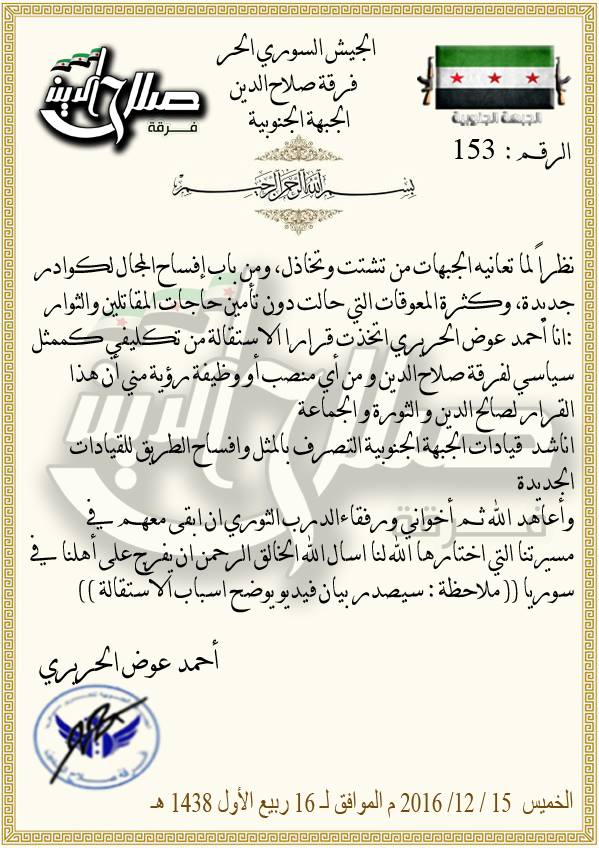 الجيش السوري الحر
فرقة صلاح الدين
الجبهة الجنوبية
صلاح الدين
فرقة
الجبهة الجنوبية
الرقم : 153
بسم الله الرحمن الرحيم
نظراً لما تعانيه الجبهات من تشتت وتخاذل ، ومن باب إفساح المجال لكوادر
جديدة، وكثرة المعوقات التي حالت دون تأمين حاجات المقاتلين والثوار
:انا أحمد عوض الحريري اتخذت قرارا الاستقالة من تكليفي كممثل
سياسي لفرقة صلاح الدين و من أي منصب أو وظيفة رؤية مني أن هذا
القرار لصالح الدين و الثورة و الجماعة
اناشد قيادات الجبهة الجنوبية التصرف بالمثل وافساح الطريق للقيادات
الجديدة
وأعاهد الله ثم أخواني ورفقاء الدرب الثوري ان ابقى معهم في
مسيرتنا التي اختارها الله لنا اسال الله الخالق الرحمن ان يفرج على أهلنا في
سوريا (( ملاحظة : سيصدر بيان فيديو يوضح اسباب الاستقالة ))
أحمد عوض الحريري
الخميس 15 / 12/ 2016 م الموافق لـ 16 ربيع الأول 1438 هـ